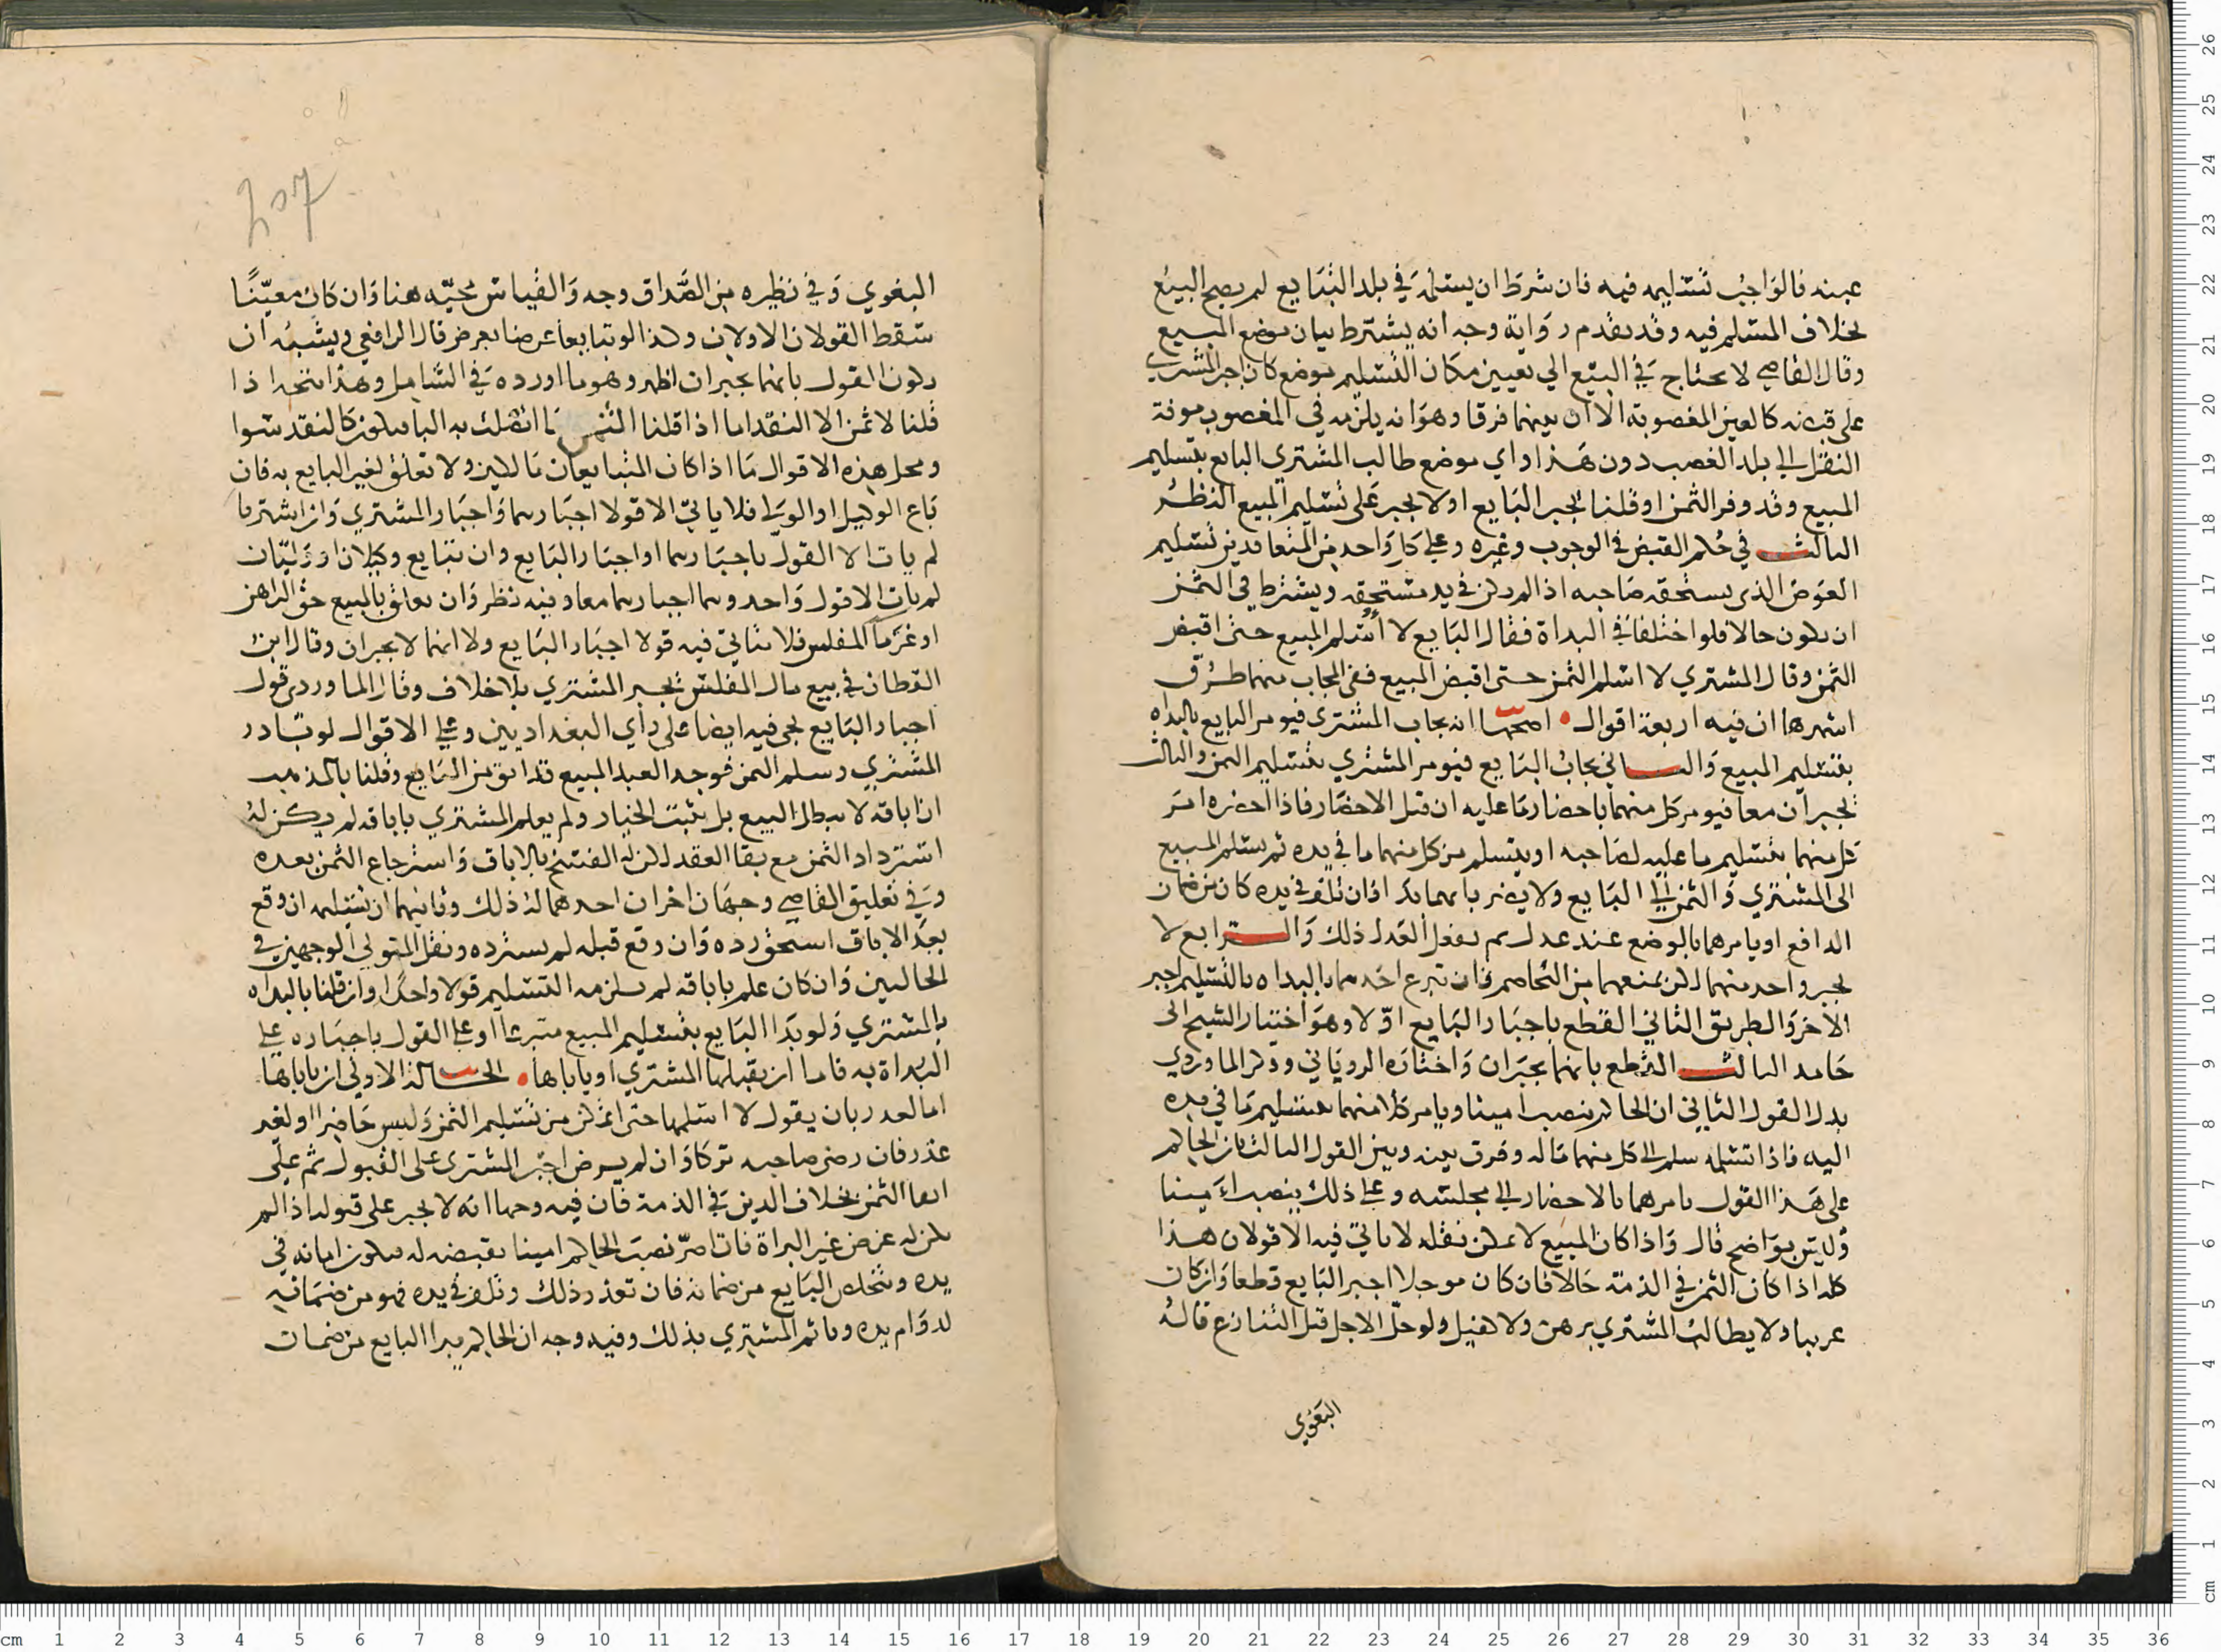 عينه فالواجب تسليمه فيه فان شرط ان يسلمه في بلد التبايع لم يصح البيع
بخلاف المسلم فيه وقد تقدم رواية وجه انه يشترط بيان موضع المبيع
وقال القاضي لا يحتاج في البيع الي تعيين مكان التسليم موضع كان اجبر المشتري
على قبضه كالعين المغصوبة الا ان بينهما فرقا وهو انه يلزمه في المغصوب مونة
النقل الي بلد الغصب دون هذا واي موضع طالب المشتري البايع بتسليم
المبيع وقد وفر الثمن او قلنا يجبر البايع اولا يجبر على تسليم المبيع النظر
الثالث في حكم القبض في الوجوب وغيره وعلي كل واحد من المتعاقدين تسليم
العوض الذي يستحقه صاحبه اذا لم يكن في يد مستحقه ويشترط في الثمن
ان يكون حالا فلو اختلفا في البداة فقال البايع لا أسلم المبيع حتى اقبض
الثمن وقال المشتري لا اسلم الثمن حتى اقبض المبيع ففي المجاب منهما طرق
اشهرها ان فيه اربعة اقوال اصحها انه يجاب المشتري فيومر البايع بالبداه
بتسليم المبيع والثاني يجاب البايع فيومر المشتري بتسليم الثمن والثالث
يجبران معا فيومر كل منهما باحضار ما عليه ان قبل الاحضار فاذا احضره امر
كل منهما بتسليم ما عليه لصاحبه او يتسلم من كل منهما ما في يده ثم يسلم المبيع
الى المشتري والثمن الي البايع ولا يضر بايهما بدا فان تلف في يده كان من ضمان
الدافع او يامرهما بالوضع عند عدل ثم يفعل العدل ذلك والرابع لا
يجبر واحد منهما لكن يمنعهما من التخاصم فان تبرع احدهما بالبداه بالتسليم اجبر
الاخر والطريق الثاني القطع باجبار البايع اولا وهو اختيار الشيخ ابي
حامد الثالث القطع بانهما يجبران واختاره الروياني وذكر الماوردي
بدل القول الثاني ان الحاكم ينصب امينا ويامر كلا منهما بتسليم ما في يده
اليه فاذا تسلمه سلم الي كل منهما ماله وفرق بينه وبين القول الثالث بان الحاكم
على هذا القول يامرهما بالاحضار الي مجلسه وعلي ذلك ينصب امينا
وليس بواضح قال واذا كان المبيع لا يمكن نقله لا ياتي فيه الا قولان هذا
كله اذا كان الثمن في الذمة حالا فان كان موجلا اجبر البايع قطعا وان كان
غريبا ولا يطالب المشتري برهن ولا كفيل ولو حل الاجل قبل التنازع قاله
البغوي
البغوي وفي نظيره من الصداق وجه والقياس مجيه هنا وان كان معينًا
سقط القولان الاولان وكذا لو تبايعا عرضا بعرض قال الرافعي ويشبه ان
يكون القول بانهما يجبران اظهر وهو ما اورده في الشامل وهذا يتجه اذا
قلنا لا ثمن الا النقد اما اذا قلنا الثمن ما اتصلت به الباء فيكون كالنقد سوا
ومحل هذه الاقوال ما اذا كان المتبايعان مالكين ولا تعلق لغير البايع به فان
باع الوكيل او الولي فلا ياتي الا قولا اجبارهما واجبار المشتري وان اشتريا
لم يات الا القول باجبارهما او اجبار البايع وان تبايع وكيلان او وليان
لم يات الا قول واحد وهما اجبارهما معا وفيه نظر وان تعلق بالمبيع حق الراهن
او غرما المفلس فلا ياتي فيه قولا اجبار البايع ولا انهما لا يجبران وقال ابن
القطان في بيع مال المفلس يجبر المشتري بلا خلاف وقال الماوردي قول
اجبار البايع يجي فيه ايضا على راي البغداديين وعلي الاقوال لو تبادر
المشتري وسلم الثمن فوجد العبد المبيع قد ابق من البايع وقلنا بالمذهب
ان اباقه لا يبطل البيع بل يثبت الخيار ولم يعلم المشتري باباقه لم يكن له
استرداد الثمن مع بقا العقد لكن له الفسخ بالاباق واسترجاع الثمن بعده
وفي تعليق القاضي وجهان اخران احدهما له ذلك وثانيهما ان تسليمه ان وقع
بعد الاباق استحق رده وان وقع قبله لم يسترده ونقل المتولي الوجهين في
الحالين وان كان علم باباقه لم يلزمه التسليم قولا واحدًا وان قلنا بالبداه
بالمشتري ولو بدا البايع بتسليم المبيع متبرعا او علي القول باجباره علي
البداة به فاما ان يقبلها المشتري او ياباها الحالة الاولي ان ياباها
اما لعذر بان يقول لا استلمها حتى اتمكن من تسليم الثمن وليس حاضرا او لغير
عذر فان رضي صاحبه تركا وان لم يرض اجبر المشتري على القبول ثم على
ايفا الثمن بخلاف الدين في الذمة فان فيه وجها انه لا يجبر على قبوله اذا لم
يكن له غرض غير البراة فان اصر نصب الحاكم امينا يقبضه له فيكون امانة في
يده ويتخلص البايع من ضمانه فان تعذر ذلك وتلف في يده فهو من ضمانه
لدوام يده وياثم المشتري بذلك وفيه وجه ان الحاكم يبرا البايع من ضمان